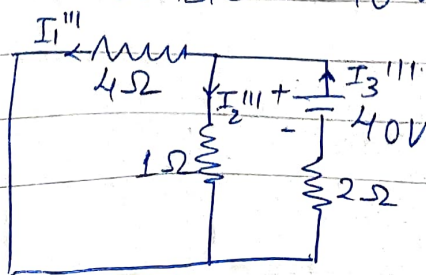 I₁'''
4Ω
I₂'''
+
I₃'''
40V
-
1Ω
2Ω